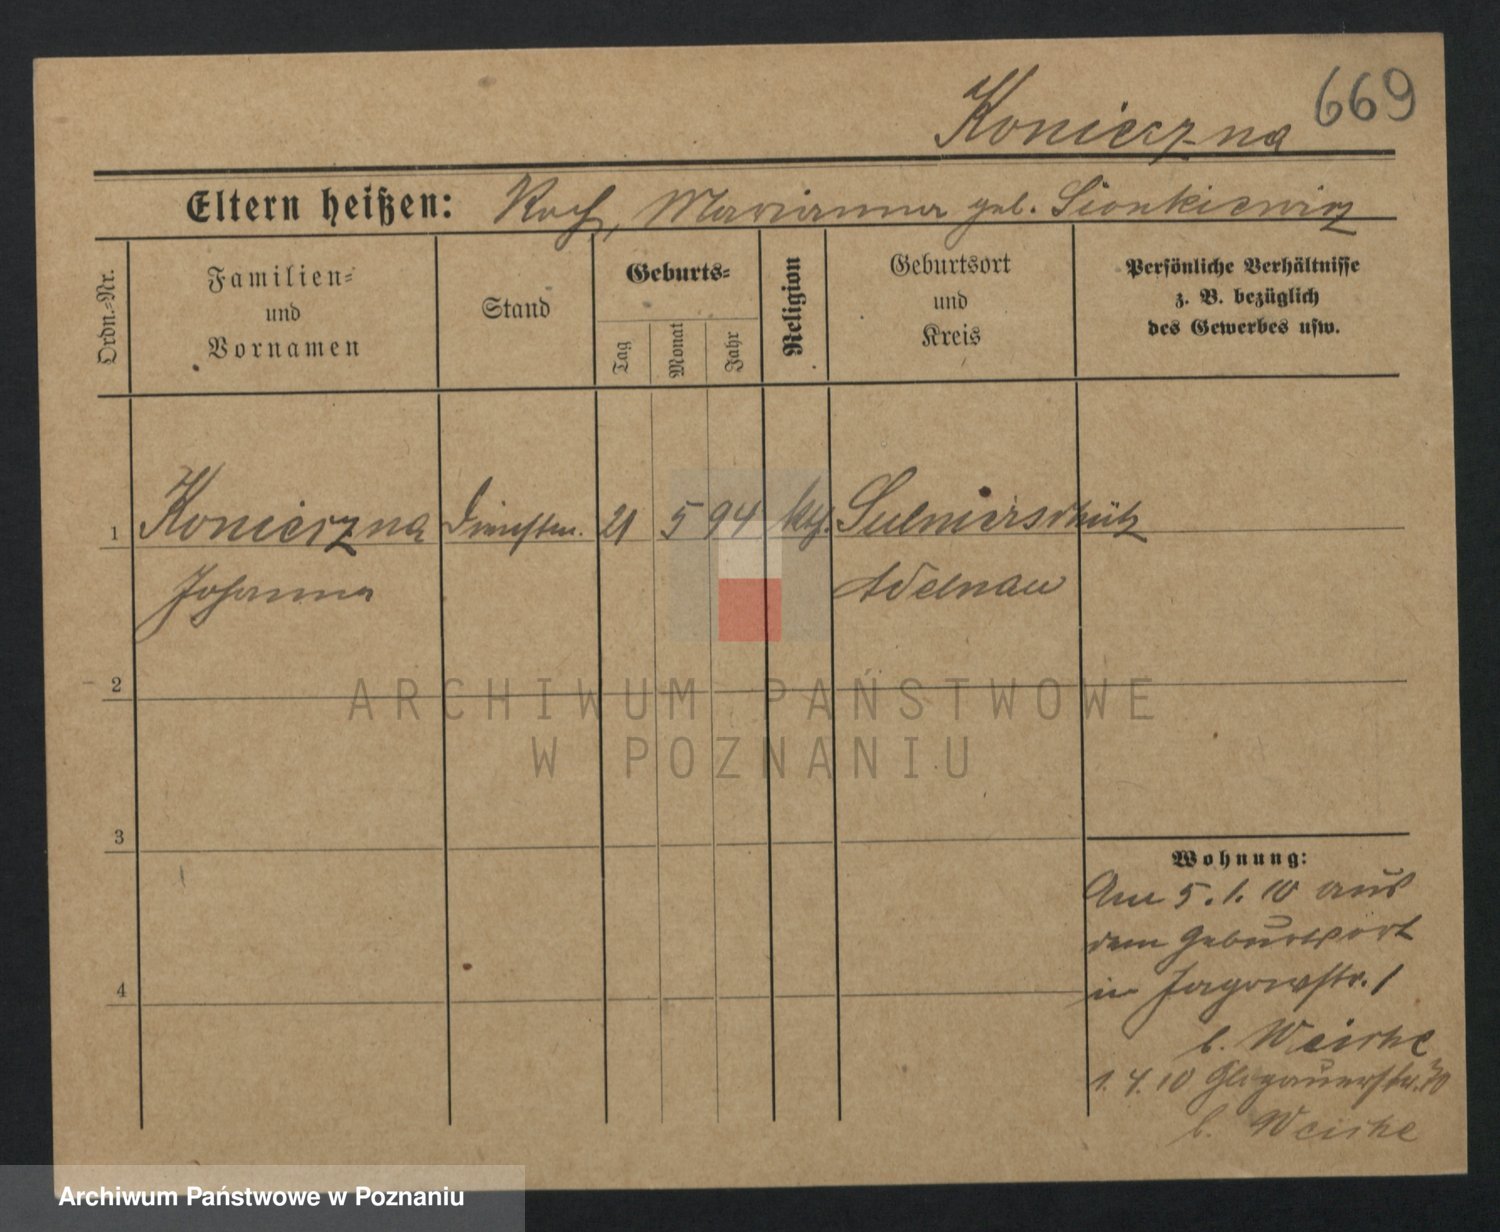 669
Konieczna
Eltern heißen: Roch, Marianna geb. Sionkiewicz
Ordn.-Nr.
Familien- und Vornamen
Stand
Geburts-
Tag
Monat
Jahr
Religion
Geburtsort und Kreis
Persönliche Verhältnisse
z. B. bezüglich
des Gewerbes usw.
1 Konieczna Dienstm. 21 5 94 kth. Sulmierschütz
Johanna Adelnau
2
3
4
Wohnung:
Am 5.1.10 aus
dem Geburtsort
in Jagowstr. 1
b.
1.4.10 Glogauerstr.
b.
ARCHIWUM PAŃSTWOWE
W POZNANIU
Archiwum Państwowe w Poznaniu